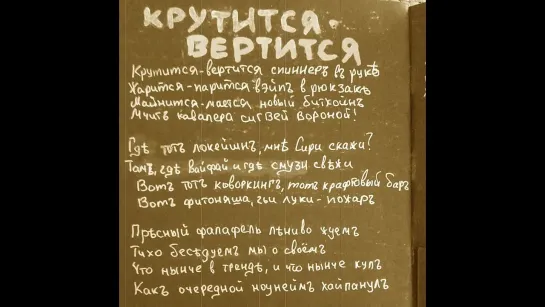 КРУТИТСЯ-
ВЕРТИТСЯ
Крутится-вертится спиннеръ въ рукѣ
Жарится-парится вэйпъ в рюкзакѣ
Майнится-мается новый биткойнъ
Мчитъ кавалера сигвей вороной!
Гдѣ тотъ локейшнъ, мнѣ Сири скажи?
Тамъ, гдѣ вайфай и гдѣ смузи свѣжи
Вотъ тотъ коворкингъ, тотъ крафтовый баръ
Вотъ фитоняша, чьи луки-пожаръ
Прѣсный фалафель лѣниво жуемъ
Тихо бесѣдуемъ мы о своёмъ
Что нынче в трендѣ, и что нынче кулъ
Какъ очередной ноунеймъ хайпанулъ